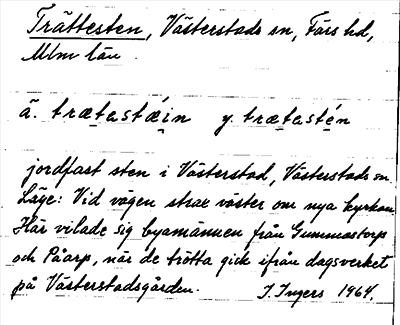 Trättesten, Västerstads sn, Färs hd,
Mlm län.
ä. trætastæ´in y. trætasté´n
jordfast sten i Västerstad, Västerstads sn.
Läge: Vid vägen strax väster om nya kyrkan.
Här vilade sig byamännen från Gummastorp
och Påarp, när de trötta gick ifrån dagsverket
på Västerstadsgården. I. Ingers 1964.